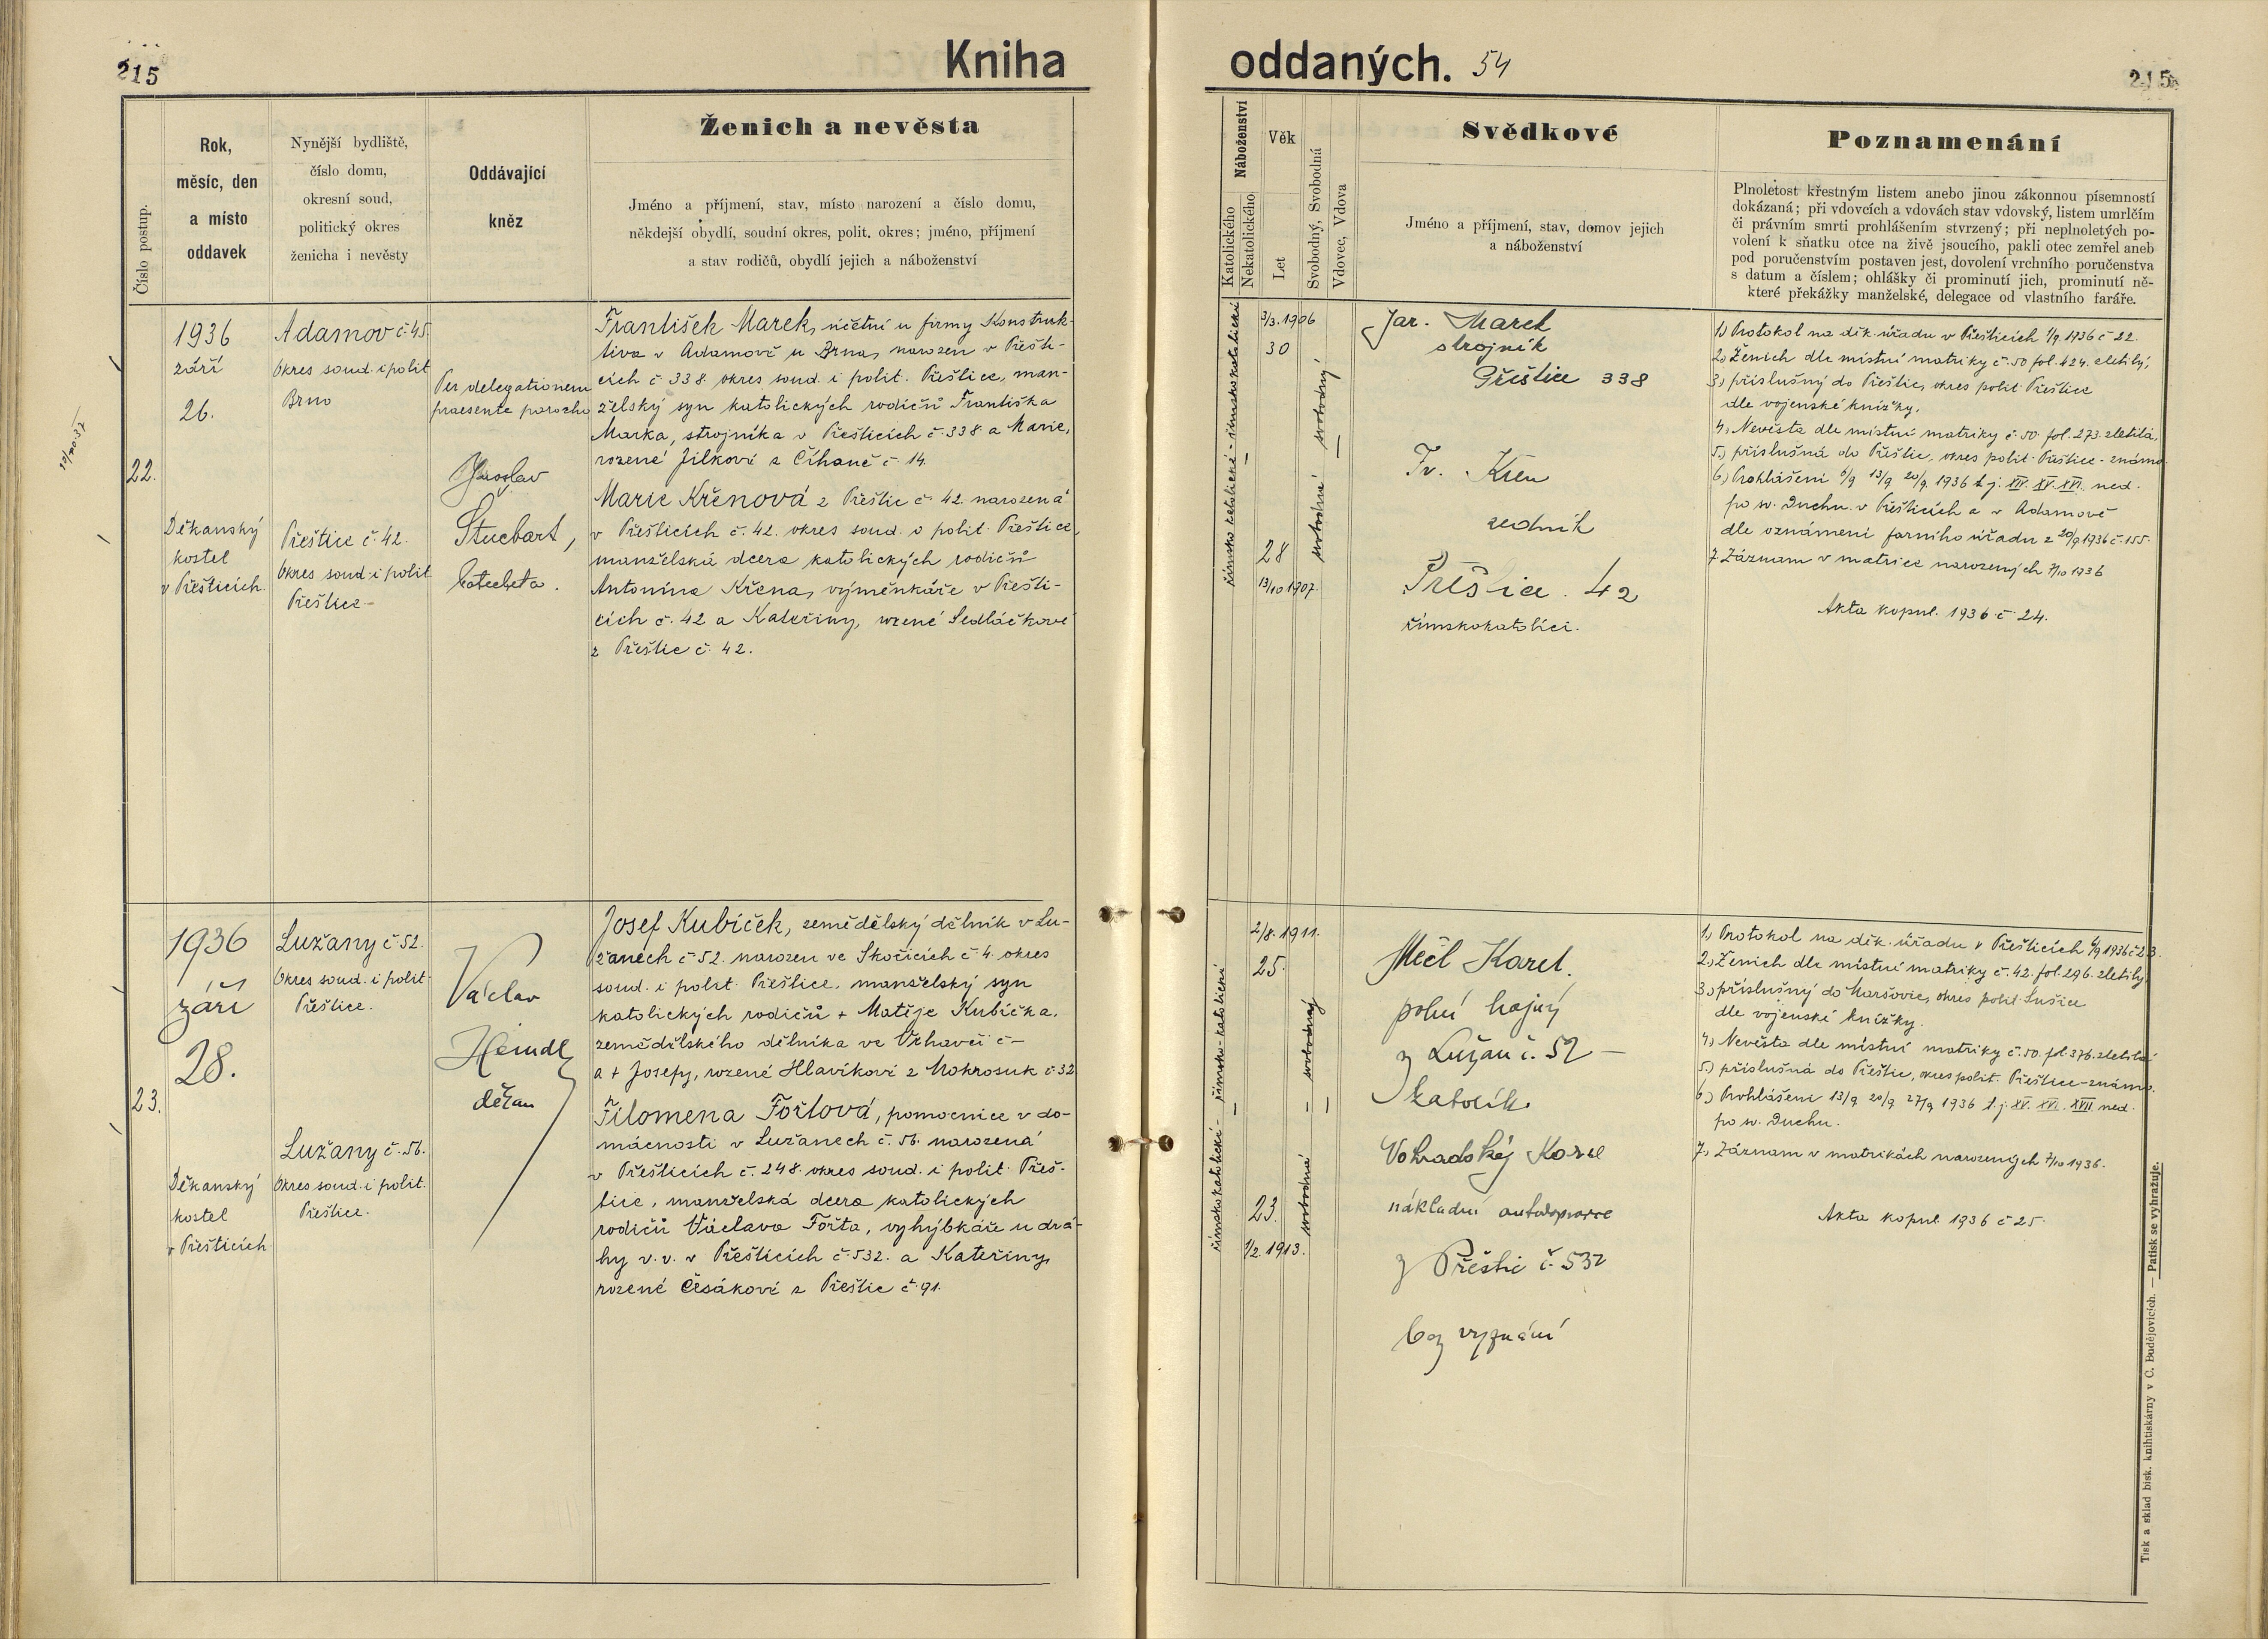 215
Kniha
oddaných. 54
215
Číslo postup.
Rok,
měsíc, den
a místo
oddavek
Nynější bydliště,
číslo domu,
okresní soud,
politický okres
ženicha i nevěsty
Oddávající
kněz
Ženich a nevěsta
Jméno a příjmení, stav, místo narození a číslo domu,
někdejší obydlí, soudní okres, polit. okres; jméno, příjmení
a stav rodičů, obydlí jejich a náboženství
Náboženství
Katolického
Nekatolického
Věk
Let
Svobodný, Svobodná
Vdovec, Vdova
Svědkové
Jméno a příjmení, stav, domov jejich
a náboženství
Poznamenání
Plnoletost křestným listem anebo jinou zákonnou písemností
dokázaná; při vdovcích a vdovách stav vdovský, listem umrlčím
či právním smrti prohlášením stvrzený; při neplnoletých po-
volení k sňatku otce na živě jsoucího, pakli otec zemřel aneb
pod poručenstvím postaven jest, dovolení vrchního poručenstva
s datum a číslem; ohlášky či prominutí jich, prominutí ně-
které překážky manželské, delegace od vlastního faráře.
22.
1936
září
26.
Děkanský
kostel
v Přešticích.
Adamov č 45.
Okres soud. i polit
Brno
Přeštice č. 42.
Okres soud. i polit
Přeštice
Per delegationem
praesente parocho
Jaroslav
Stuchart,
katecheta.
František Marek, účetní u firmy Konstruk-
tiva v Adamově u Brna, narozen v Přešti-
cích č 338. okres soud. i polit. Přeštice, man-
želský syn katolických rodičů Františka
Marka, strojníka v Přešticích č. 338 a Marie,
rozené Jílkové z Číhaně č 14.
Marie Křenová z Přeštic č. 42. narozená
v Přešticích č. 42. okres soud. i polit. Přeštice,
manželská dcera katolických rodičů
Antonína Křena, výměnkáře v Přešti-
cích č. 42 a Kateřiny, rozené Sedláčkové
z Přeštic č. 42.
římskokatolické - římskokatolické
3/3. 1906
30
28
13/10 1907.
svobodná svobodný
Jar. Marek
strojník
Přeštice 338
Fr. Křen
zedník
Přeštice. 42
římskokatolíci.
1) Protokol na děk. úřadu v Přešticích 1/9. 1936 č 22.
2) Ženich dle místní matriky č. 50 fol. 424. zletilý,
3) příslušný do Přeštic, okres polit. Přeštice
dle vojenské knížky.
4) Nevěsta dle místní matriky č. 50. fol. 273. zletilá,
5) příslušná do Přeštic, okres polit. Přeštice - známa
6) Prohlášeni 6/9 13/9 20/9. 1936 t. j. XIV. XV. XVI. ned.
po sv. Duchu. v Přešticích a v Adamově
dle oznámení farního úřadu z 20/9 1936 č. 155.
7. Záznam v matrice narozených 7/10 1936
Akta kopul. 1936 č 24.
23.
1936
září
28.
Děkanský
kostel
v Přešticích
Lužany č. 52.
Okres soud. i polit.
Přeštice.
Lužany č. 56.
Okres soud. i polit.
Přeštice.
Václav
Heindl,
děkan
Josef Kubíček, zemědělský dělník v Lu-
žanech č 52. narozen ve Skočicích č. 4. okres
soud. i polit. Přeštice. manželský syn
katolických rodičů + Matěje Kubíčka.
zemědělského dělníka ve Vrhavči č -
a + Josefy, rozené Hlavíkové z Mokrosuk č 32
Filomena Fořtová, pomocnice v do-
mácnosti v Lužanech č. 56. narozená
v Přešticích č. 248. okres soud. i polit. Přeš-
tice, manželská dcera katolických
rodičů Václava Fořta, vyhýbkáře u drá-
hy v. v. v Přešticích č. 532. a Kateřiny,
rozené Česákové z Přeštic č. 91.
římskokatolické - římsko-katolické
2/8. 1911.
25.
23.
1/2. 1913.
svobodná - svobodný
Mečl Karel.
polní hajný
z Lužan č. 52
katolík
Vohradský Karel
nákladní autodopravce
z Přeštic č. 532
bez vyznání
1) Protokol na děk. úřadu v Přešticích 6/9 1936 č 23.
2) Ženich dle místní matriky č. 42. fol. 296. zletilý,
3) příslušný do Maršovic, okres polit. Sušice
dle vojenské knížky.
4) Nevěsta dle místní matriky č. 50. fol. 376. zletilá
5) příslušná do Přeštic, okres polit. Přeštice - známa.
6) Prohlášeni 13/9 20/9 27/9 1936 t. j. XV. XVI. XVII ned.
po sv. Duchu.
7) Záznam v matrikách narozených 7/10 1936.
Akta kopul. 1936 č 25.
Tisk a sklad bisk. knihtiskárny v Č. Budějovicích. — Patisk se vyhražuje.